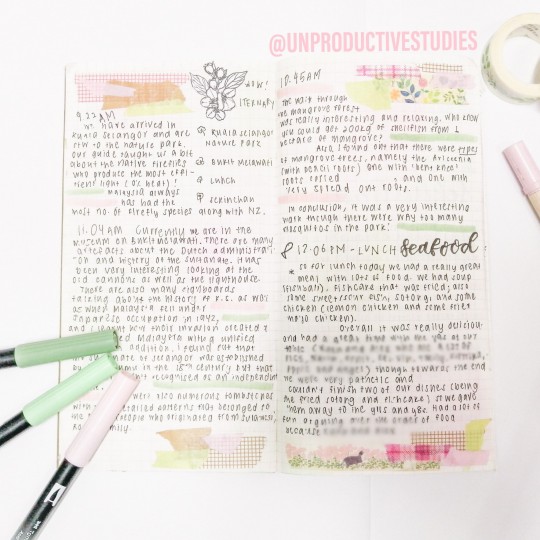 @UNPRODUCTIVESTUDIES
9.22 AM
We have arrived in
Kuala Selangor and are
otw to the nature park.
Our guide taught us a bit
about the native fireflies
who produce the most effi-
cient light (0% heat)!
Malaysia always
has had the
most no. of firefly species along with NZ.
WOW!
ITERNARY
Kuala Selangor
Nature Park
Bukit Melawati
Lunch
Sekinchan
11.04 AM Currently we are in the
museum on Bukit Melawati. There are many
artefacts about the Dutch administrat-
ion and history of the sultanate. It was
been very interesting looking at the
old cannons as well as the lighthouse.
There are also many signboards
talking about the history of K.S. as well
as when Malaysia fell under
Japanese occupation in 1942,
and I learnt how their invasion created a
Malaya with a unified
addition, I found out that
the sultanate of Selangor was established
in the 18th century but that
recognised as an independent
were also numerous tombstones
with detailed patterns that belonged to
the people who originated from Sulawesi,
family.
12.45AM
The walk through
the mangrove forest
was really interesting and relaxing. Who knew
you could get 200kg of shellfish from 1
hectare of mangrove?
Also, I found out that there were types
of mangrove trees, namely the Avicennia
(with pencil roots) one with 'bent knee'
roots called and one with
very spread out roots.
In conclusion, it was a very interesting
walk though there were way too many
mosquitos in the park!
12:06 PM - LUNCH seafood
* So for lunch today we had a really great
meal with lots of food. We had soup
(fishball), fishcake that was fried, also
some sweet&sour fish, sotong, and some
chicken (lemon chicken and some fried
mojo chicken).
Overall it was really delicious
and had a great time with the
though towards the end
we were very pathetic and
couldn't finish two of our dishes (being
the fried sotong and fishcake) so we gave
them away to the y11s and y8s. Had a lot of
fun arguing over the of food
because